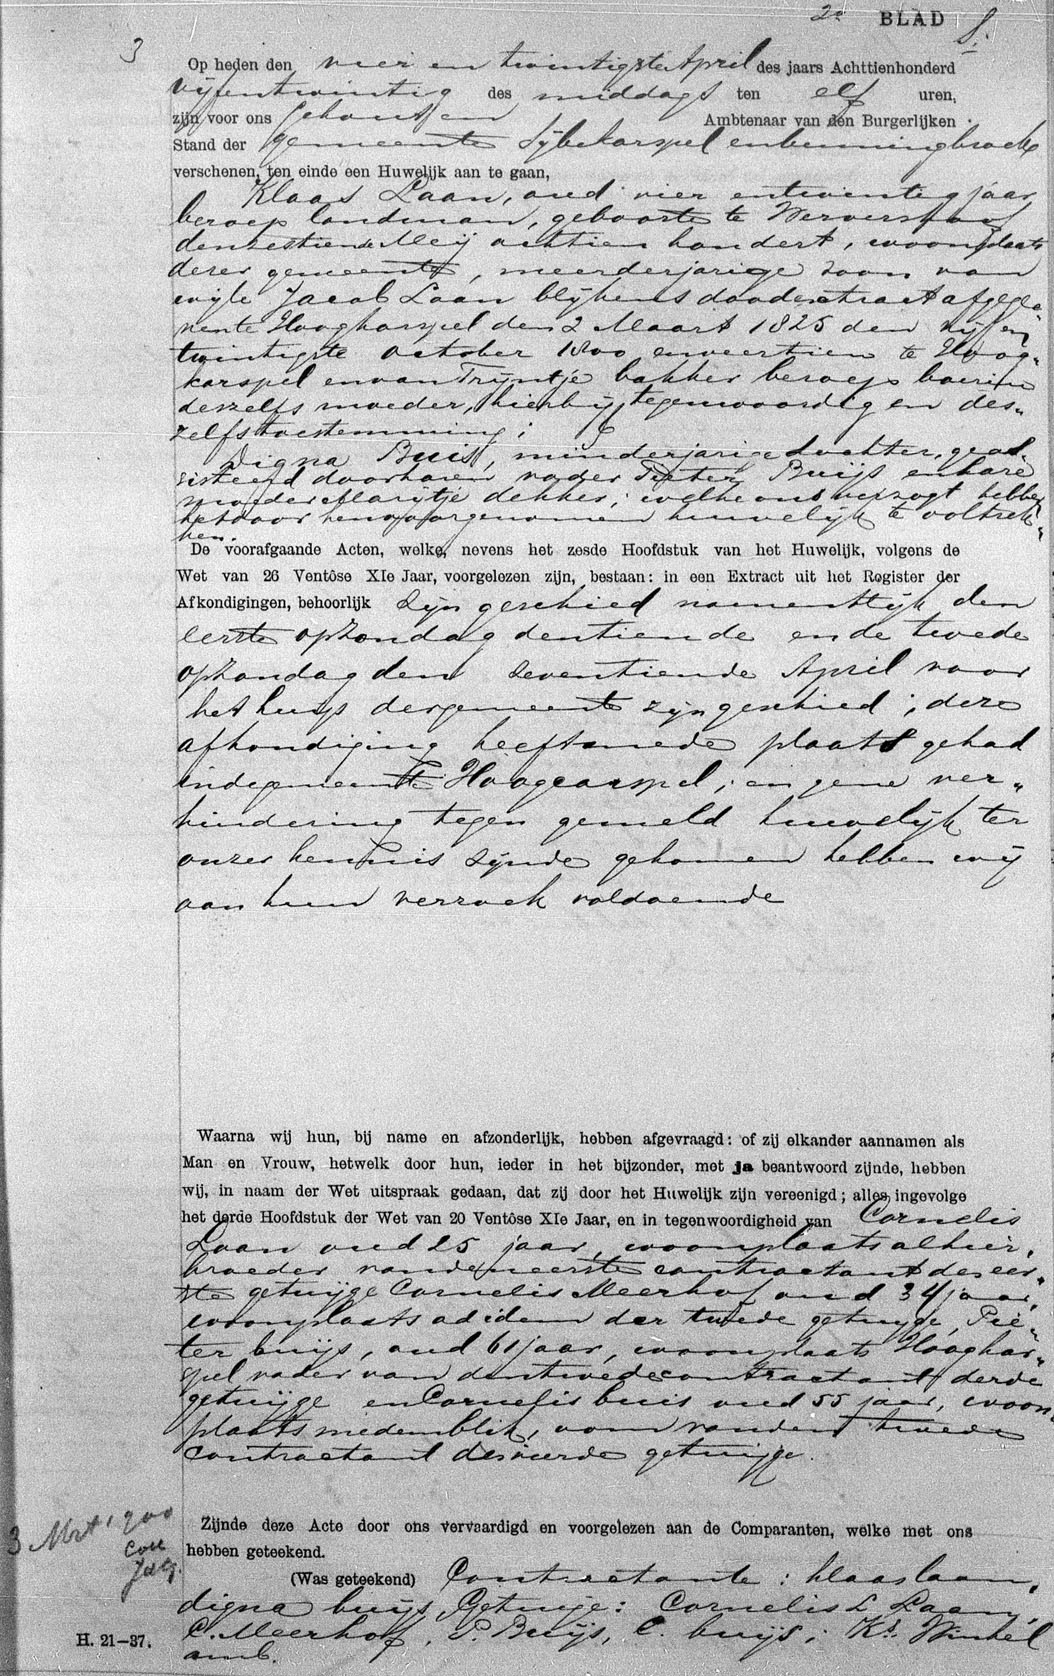 2e BLAD 8.
3
Op heden den vier en twintigste April des jaars Achttienhonderd
vijfentwintig des middags ten elf uren,
zijn voor ons Ambtenaar van den Burgerlijken
Stand der gemeente Sijbekarspel en benningbroek
verschenen, ten einde een Huwelijk aan te gaan,
Klaas Laan, oud vier entwintig jaar
beroep landman, geboorte te Wervershoof
den zestiende Meij achtien hondert, woonplaats
dezer gemeente, meerderjarige zoon van
wijle Jacob Laan blijkens doodextract afgege=
vente Hoogkarspel den 2 Maart 1825 den vijfen
twintigste october 1800 enveertien te Hoog=
karspel envan Trijntje bakker beroep boerin
deszelfs moeder, hierbij tegenwoordig en des=
zelfs toestemming;
Digna Buis, minderjarige dochter, gead=
sisteerd doorharen vader Pieter Buijs en hare
moeder Marijtje dekker; welke ons verzogt hebben
het door hen voorgenomen huwelijk te voltrek=
ken.
De voorafgaande Acten, welke, nevens het zesde Hoofdstuk van het Huwelijk, volgens de
Wet van 26 Ventôse XIe Jaar, voorgelezen zijn, bestaan: in een Extract uit het Register der
Afkondigingen, behoorlijk zijn geschied namentlijk den
eerste opzondag dentiende ende twede
opzondag den zeventiende April voor
het huijs dergemeente zijn geschied; deze
afkondiging heeft mede plaats gehad
indegemeente Hoogcarspel; en gene ver=
hindering tegen gemeld huwelijk ter
onzer kennis zijnde gekomen hebben wij
aan hun verzoek voldoende
Waarna wij hun, bij name en afzonderlijk, hebben afgevraagd: of zij elkander aannamen als
Man en Vrouw, hetwelk door hun, ieder in het bijzonder, met ja beantwoord zijnde, hebben
wij, in naam der Wet uitspraak gedaan, dat zij door het Huwelijk zijn vereenigd; alles, ingevolge
het derde Hoofdstuk der Wet van 20 Ventôse XIe Jaar, en in tegenwoordigheid van Cornelis
Laan oud 25 jaar, woonplaats alhier,
broeder vande eerste contractant de eer=
ste getuijge Cornelis Meerhof oud 34 jaar,
woonplaats ad idem der twede getuijge, Pie=
ter buijs, oud 61 jaar, woonplaats Hoogkar=
spel vader van dentwede contractant derde
getuijge en Cornelis buis oud 55 jaar, woon
plaats medemblik, oom vanden twede
contractant desvierde getuijge.
Zijnde deze Acte door ons vervaardigd en voorgelezen aan de Comparanten, welke met ons
hebben geteekend.
(Was geteekend) Contractante: klaas laan,
digna buijs, Getuige: Cornelis L Laan,
C. Meerhof, P. Buijs, C. buijs; Ks. Winkel
amb.
3 Mrt 1900
H. 21-37.